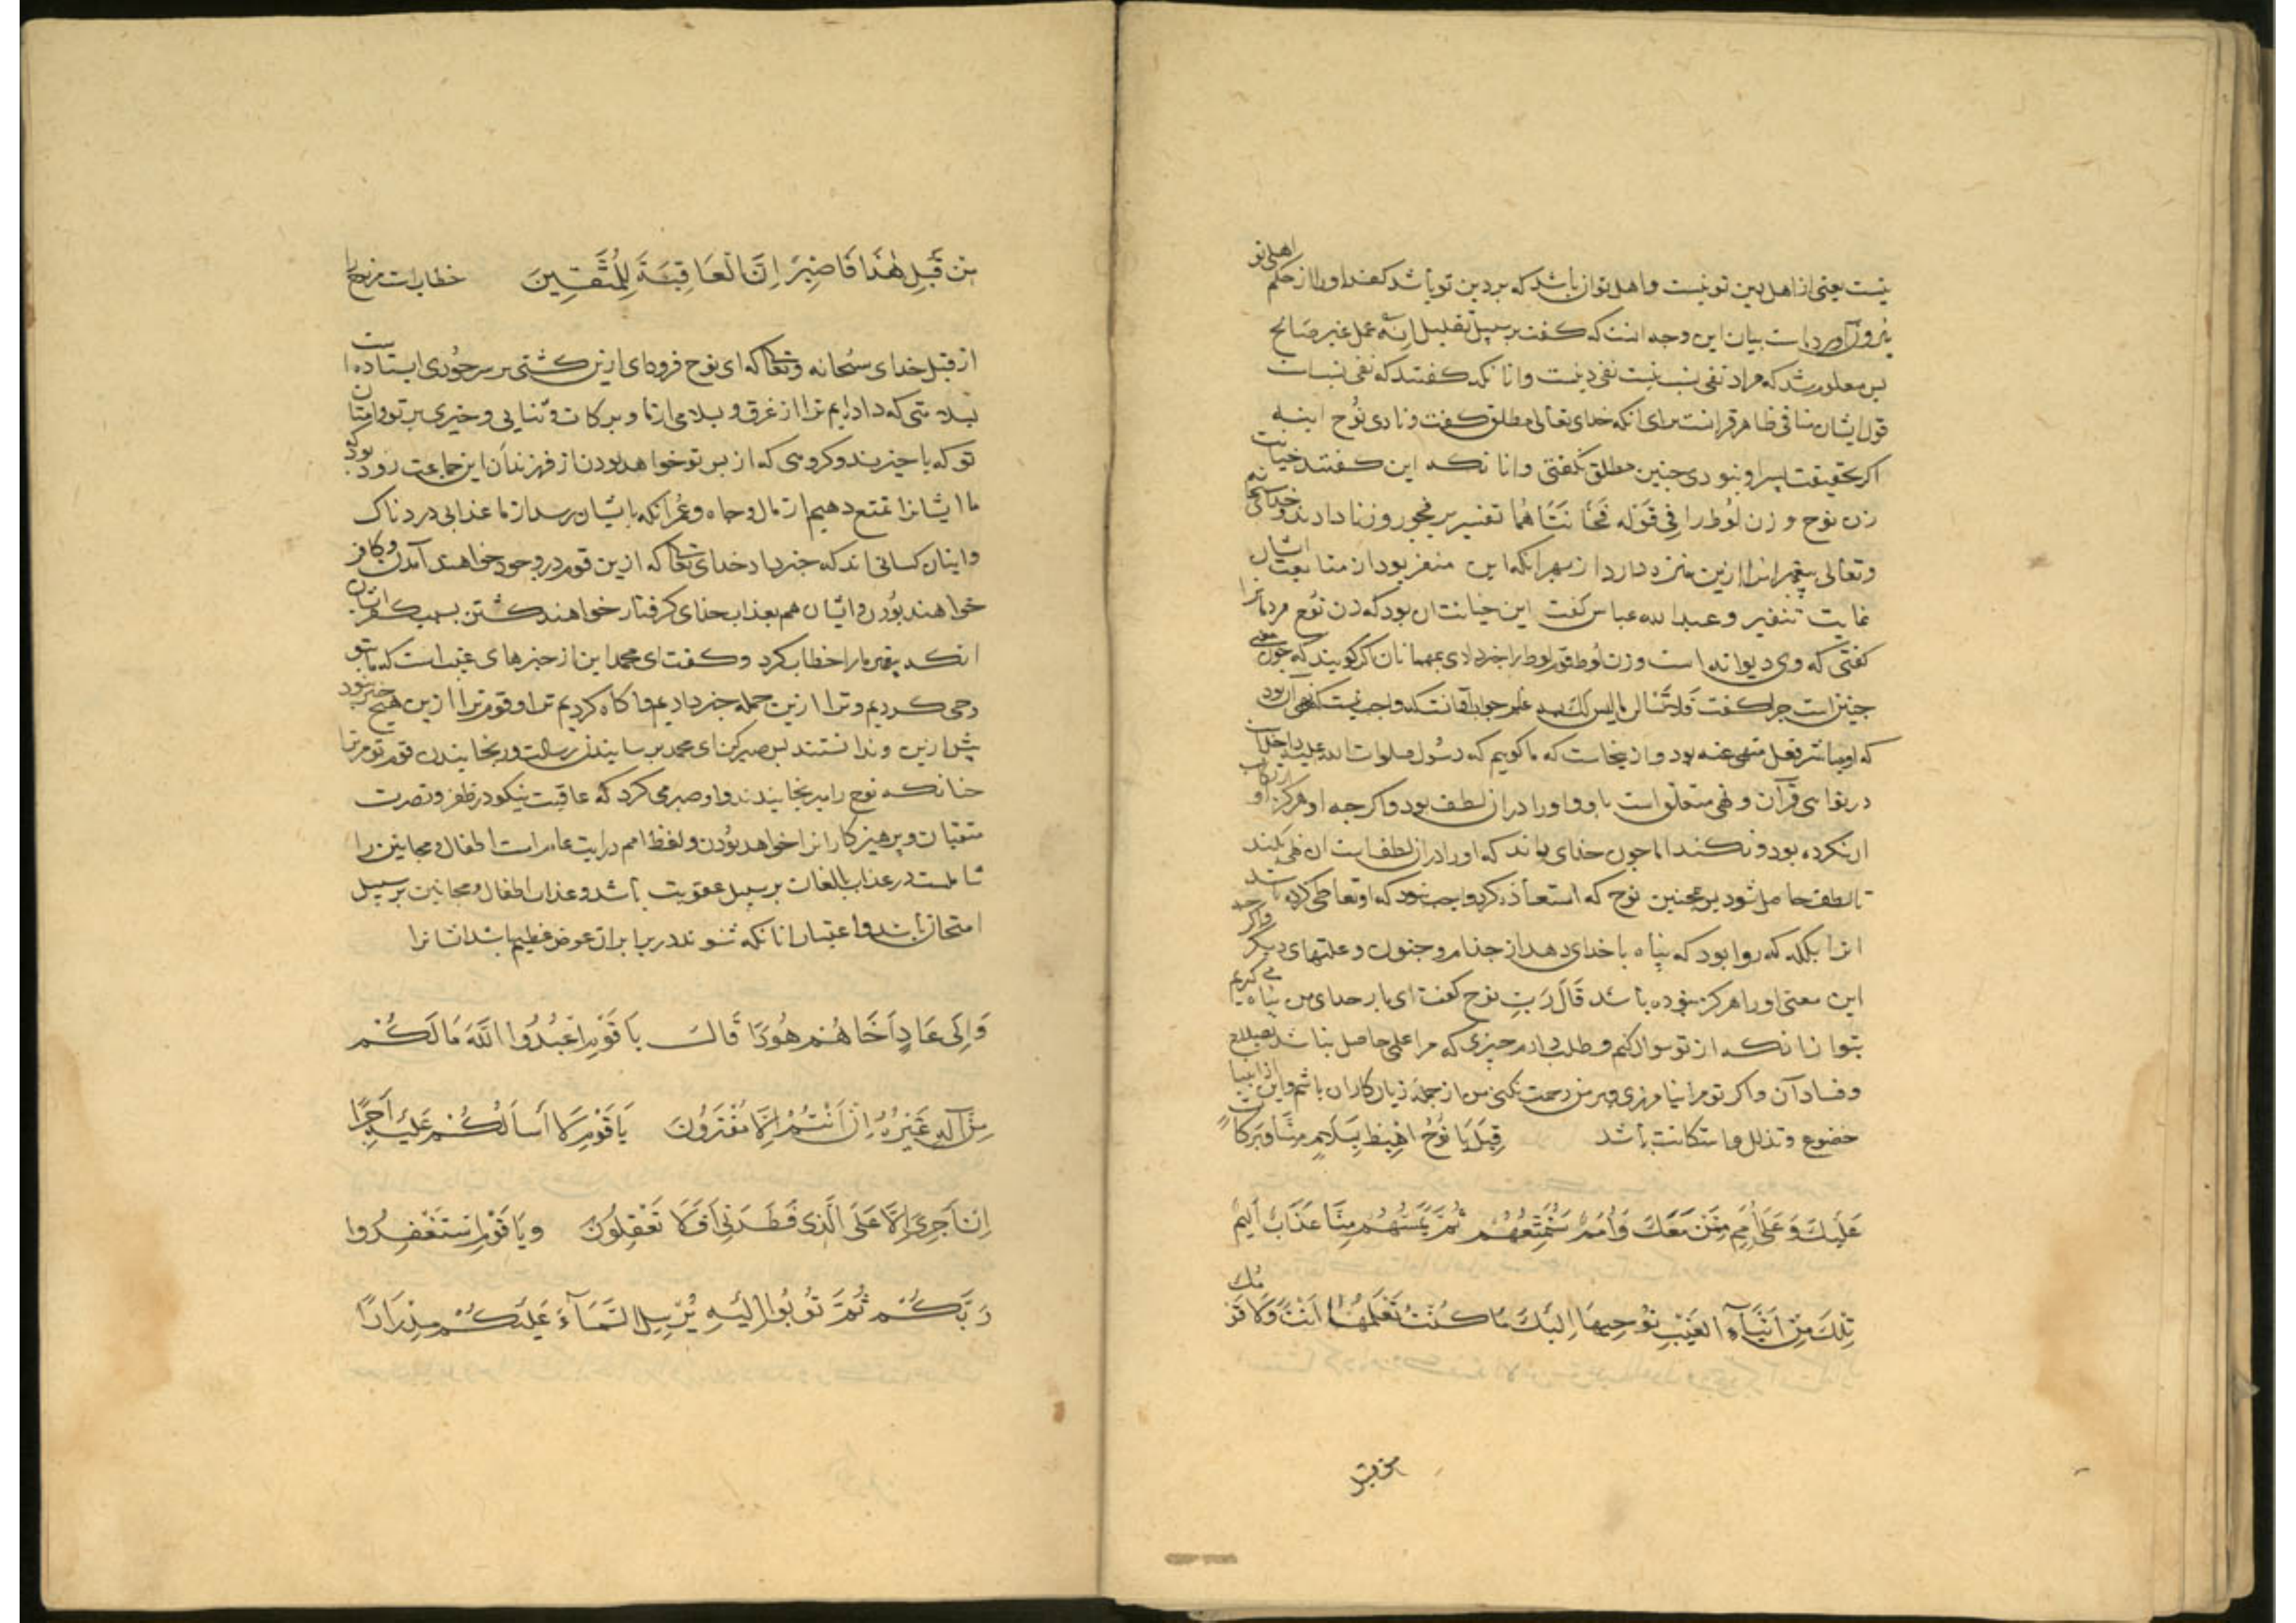 نیست یعنی از اهل دین تو نیست و اهل تو آن باشد که بر دین تو باشد کفر او را از حکم اهلی تو
بیرون آورده است بیان این وجه آنست که گفت بر سبیل تعلیل اِنَّهُ عمل غیر صَالح
پس معلوم شد که مراد نفی نسب نیست نفی دینست و آنانکه گفتند که نفی نسب است
قول ایشان منافی ظاهر قرآنست برای آنکه خدای تعالی مطلق گفت و نادی نُوح ابنه
اکر بحقیقت پسر او نبودی چنین مطلق نگفتی و آنانکه این گفتند خیانت
زن نوح و زن لُوط را فِی قَوْلِه فَخَانَتَاهُمَا تفسیر بر فجور و زنا دادند و خدای سبحانه
وتعالی پیغمبرانرا ازین منزه دارد از بهر آنکه این منفر بود از متابعت ایشان
غایت تنفیر و عبدالله عباس گفت این خیانت آن بود که زن نُوح مردمانرا
کفتی که وی دیوانه است و زن لُوط قوم لوط را خبر دادی بمهمانان اگر گویند که چون معنی
چنین است چرا گفت فَلَا تَسْألن مَا لیس لَكَ بِهِ علم جواب آنست که واجب نیست که نهی آن بود
که او مباشر فعل منهی عنه بود و از اینجاست که ما گوییم که رسُول صلوات الله علیه داخلست
در نواهی قرآن و نهی متعلق است باو و او را در آن لطف بود و اکرچه او هرگز ارتکاب
آن نکرده بود و نکند اما چون خدای داند که او را در آن لطف است آن نهی بکند
تا لطف حاصل شود و همچنین نوح که استعاذه کرد واجب نبود که او تعاطی کرده باشد
آنرا بلکه که روا بود که پناه با خدای دهد از جذام و جنون و علتهای دیگر و اگرچه
این معنی او را هرگز نبوده باشد قَالَ رَبِّ نوح گفت ای بار خدای من پناه می گیرم
بتو از آنکه از تو سوال کنم و طلب دارم چیزی که مرا علم حاصل نباشد بصلاح
و فساد آن و اکر تو مرا نیامرزی و بر من رحمت نکنی من از جمله زیان کاران باشم و این از انبیا
خضوع و تذلل و استکانت باشد قِیلَ یَا نُوحُ اهْبِطْ بِسَلَامٍ مِنَّا وَبَرَکَاتٍ
عَلَیْكَ وَعَلَی أُمَمٍ مِمَّنْ مَعَكَ وَاُمَمٌ سَنُمَتِّعُهُمْ ثُمَّ یَمَسُّهُمْ مِنَّا عَذَابٌ اَلیمٌ
تِلْكَ مِنْ اَنْبَآءِ الْغَیْبِ نُوحِیهَا اِلَیْكَ مَا کُنْتَ تَعْلَمُهَا اَنْتَ وَلَا قَوْمُكَ
من قبل
مِنْ قَبْلِ هٰذَا فَاصْبِرْ اِنَّ الْعَاقِبَةَ لِلْمُتَّقِینَ خطابست مر نوح را
از قبل خدای سُبحانه وتعالی که ای نوح فرود آی ازین کشتی بر سر جُودی ایستاده است
بسلامتی که دادیم ترا از غرق و سلامی از ما و برکات و ثنایی و خیری بر تو و امتان
تو که با چیزیند و گروهی که از پس تو خواهد بودن از فرزندان این جماعت زود بود که
ما ایشانرا تمتع دهیم از مال و جاه و عُمر آنکه بایشان رسد از ما عذابی دردناک
و اینان کسانی اند که خبر داد خدای تعالی که ازین قوم در وجود خواهند آمدن و کافر
خواهند بُودن و ایشان هم بعذاب خدای گرفتار خواهند گشتن بسبب کفر ایشان
آنکه پیغمبر ما را خطاب کرد و گفت ای محمد این از خبرهای غیب است که ما بتو
وحی کردیم و ترا ازین جمله خبر دادیم و آگاه کردیم ترا و قوم ترا ازین هیچ خبر نبود
پیش ازین و ندانستند پس صبر کن ای محمد بر رسانیدن رسالت و رنجانیدن قوم تو مر ترا
چنانکه نوح را برنجانیدند و او صبر می کرد که عاقبت نیکو در ظفر و نصرت
متقیان و پرهیزکارانرا خواهد بُودن و لفظ امم در آیت عام است اطفال و مجانین را
شاملست در عذاب بالغان بر سبیل عقوبت باشد و عذاب اطفال و مجانین بر سبیل
امتحان باشد و اعتبار آنانکه شنوند در برابر آن عوض عظیم باشد ایشانرا
وَاِلَی عَادٍ اَخَاهُمْ هُودًا قَالَ یَا قَوْمِ اعْبُدُوا اللَّهَ مَا لَکُمْ
مِنْ اِلٰهٍ غَیْرُهُ اِنْ اَنْتُمْ اِلَّا مُفْتَرُونَ یَا قَوْمِ لَا اَسْأَلُکُمْ عَلَیْهِ اَجْرًا
اِنْ اَجْرِیَ اِلَّا عَلَی الَّذِی فَطَرَنِی اَفَلَا تَعْقِلُونَ وَیَا قَوْمِ اسْتَغْفِرُوا
رَبَّکُمْ ثُمَّ تُوبُوا اِلَیْهِ یُرْسِلِ السَّمَآءَ عَلَیْکُمْ مِدْرَارًا